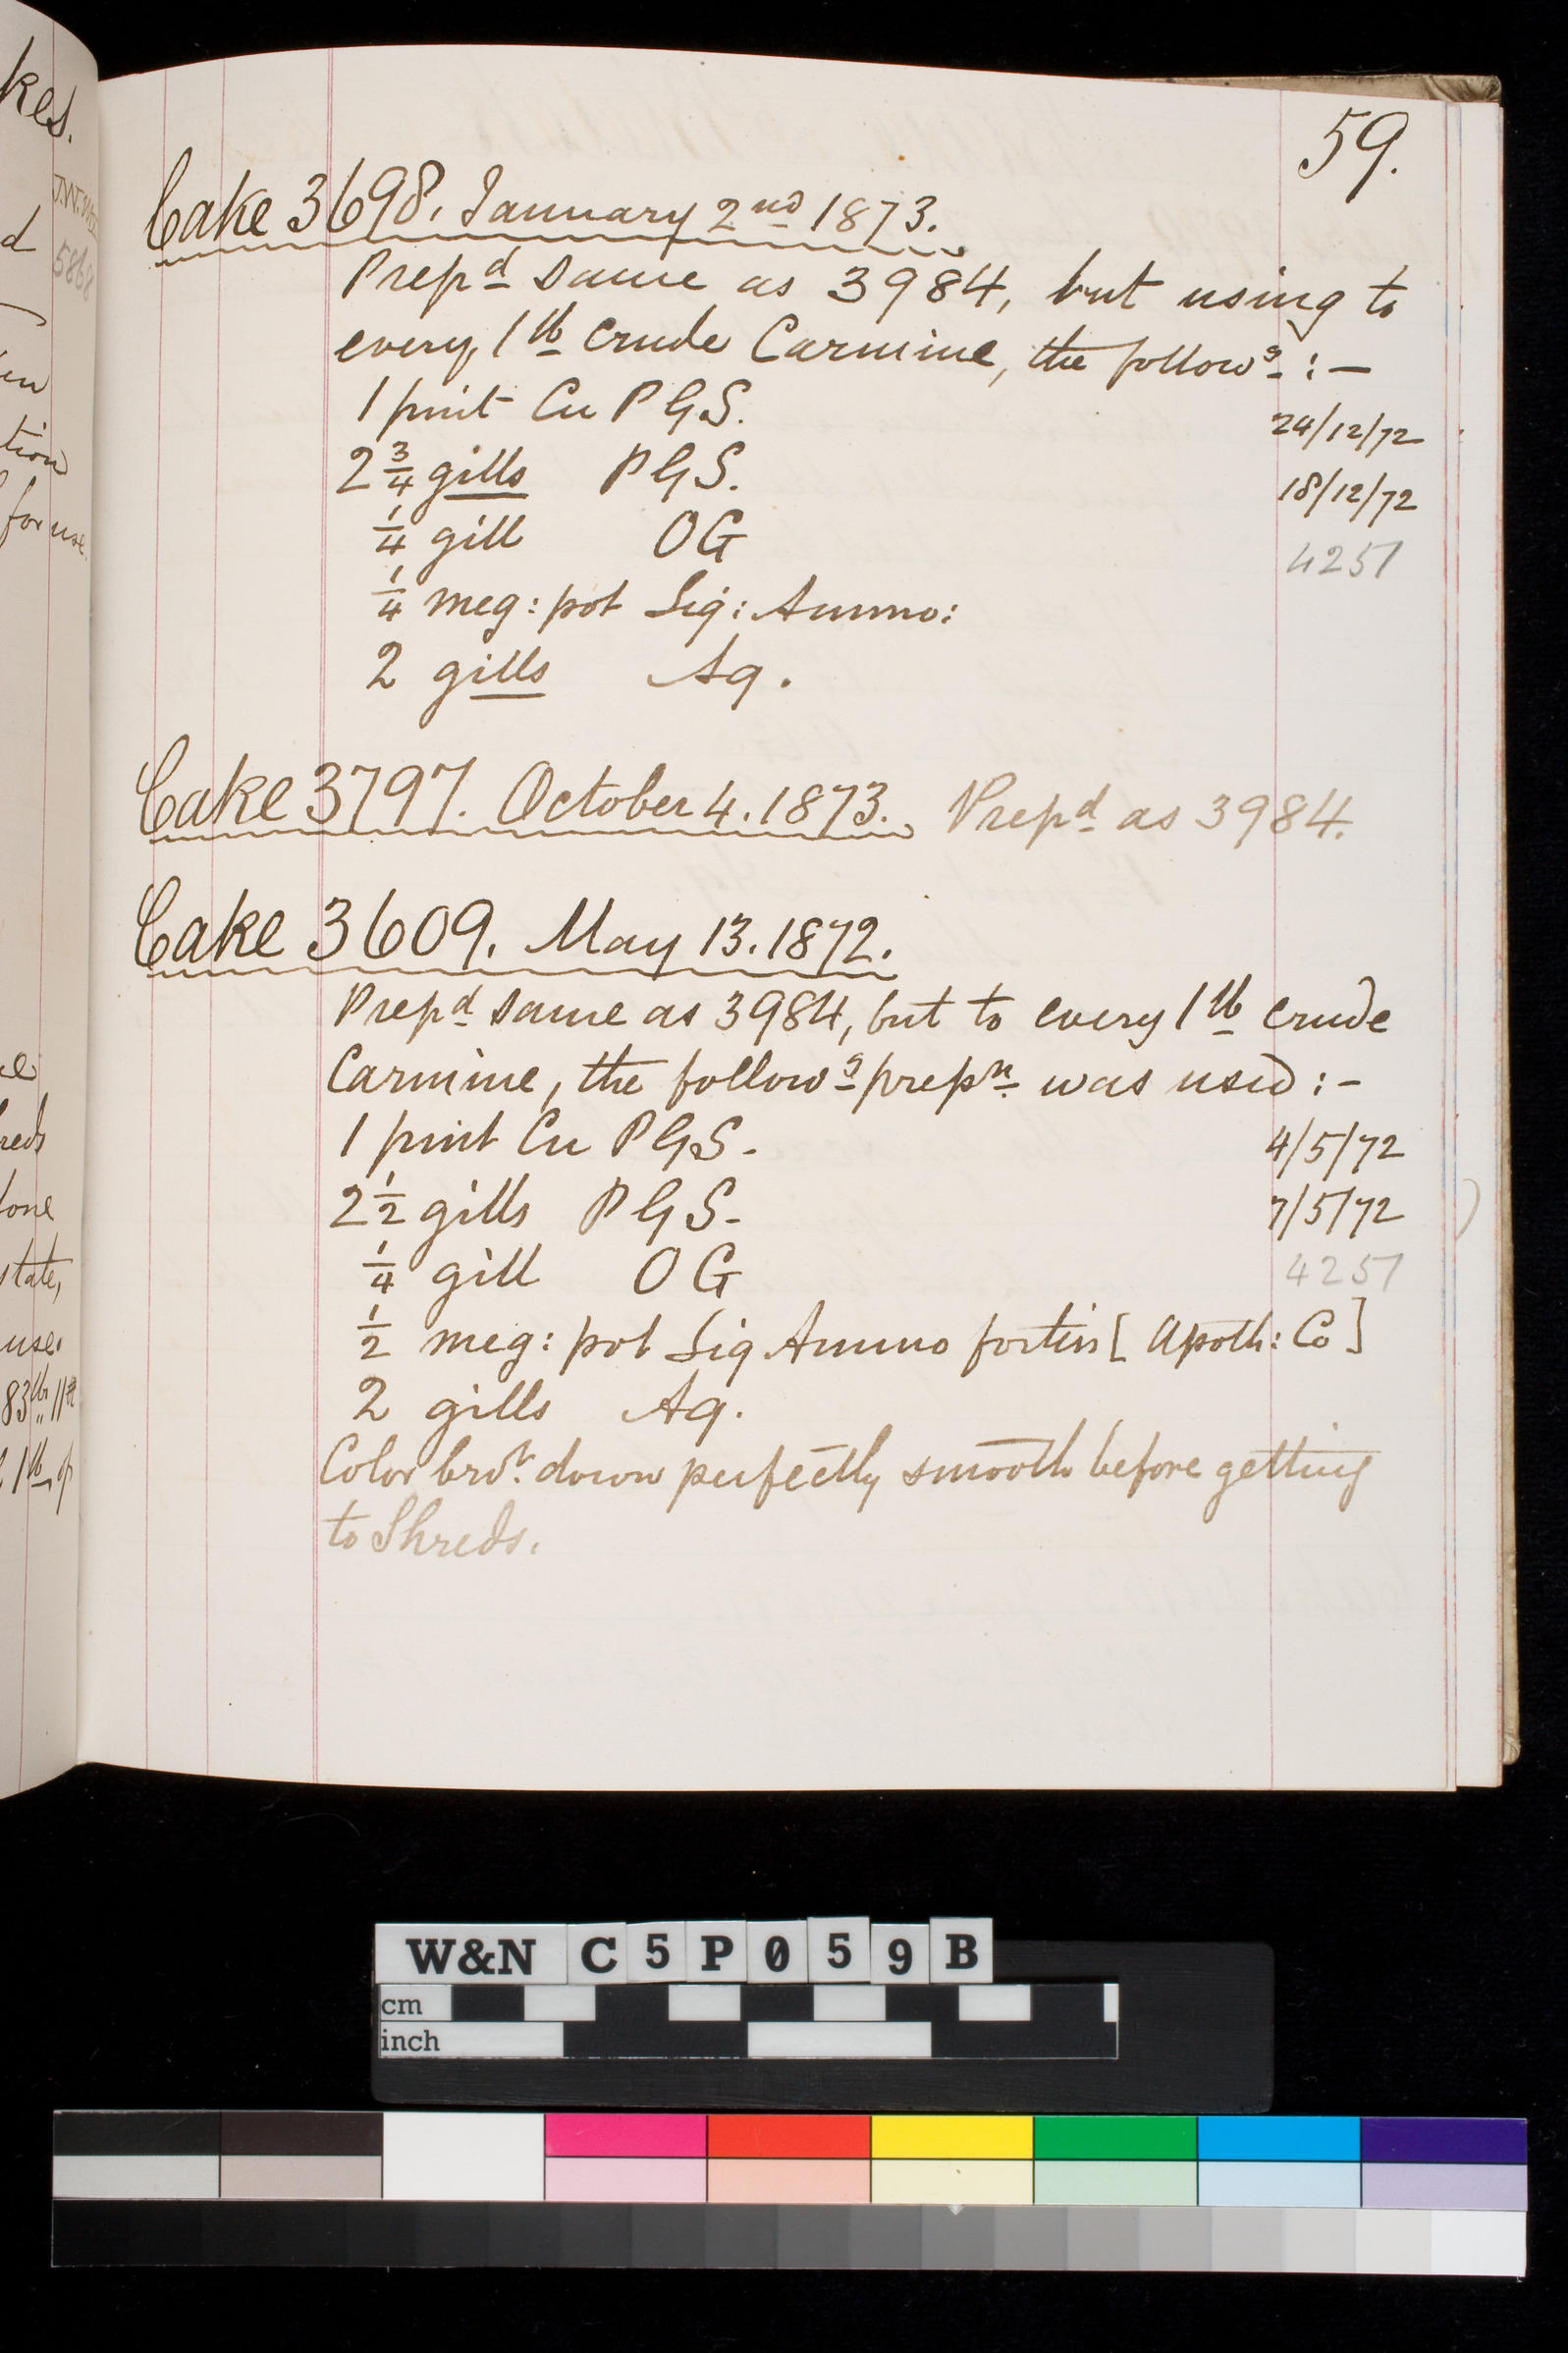 59.
Cake 3698. January 2nd 1873.
Prepd same as 3984, but using to
every 1 lb crude Carmine, the followg :—
1 pint Cu PGS. 24/12/72
2 3/4 gills PGS. 18/12/72
1/4 gill OG 4251
1/4 meg: pot Liq: Ammo:
2 gills Aq.
Cake 3797. October 4. 1873. Prepd as 3984.
Cake 3609. May 13. 1872.
Prepd same as 3984, but to every 1 lb crude
Carmine, the followg prepn. was used :-
1 pint Cu PGS. 4/5/72
2 1/2 gills PGS. 7/5/72
1/4 gill OG 4251
1/2 meg: pot Liq Ammo fortiss [Apoth: Co]
2 gills Aq.
Color brot. down perfectly smooth before getting
to Shreds.
kes.
d
5868
tion
for use.
reds
state,
use.
W&N C5P059B
cm
inch